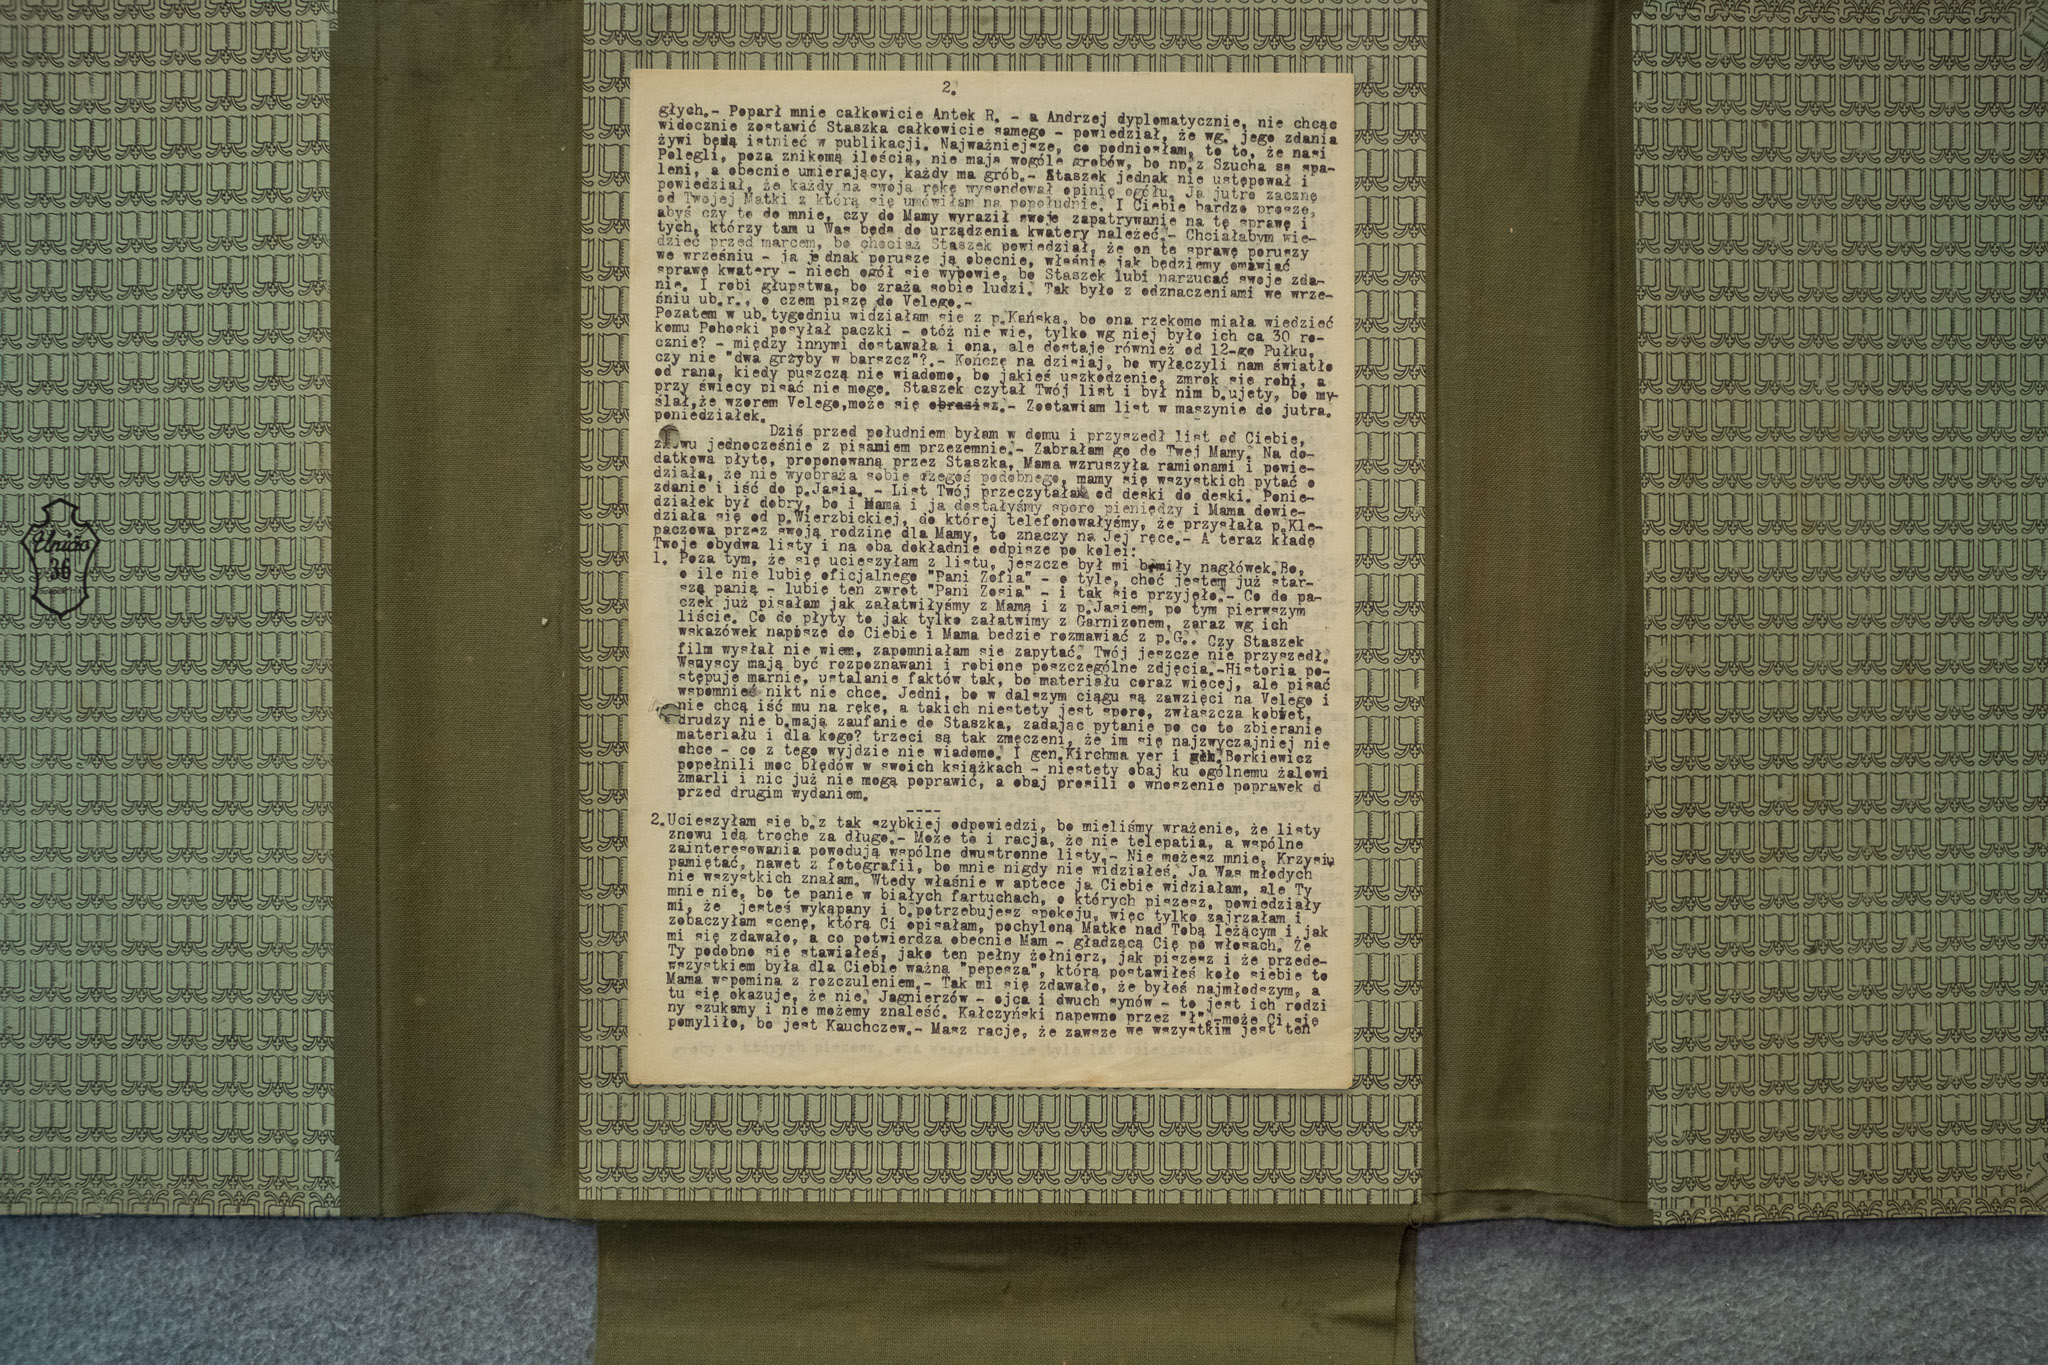 2.
głych.- Poparł mnie całkowicie Antek R. - a Andrzej dyplomatycznie, nie chcąc
widocznie zostawić Staszka całkowicie samego - powiedział, że wg. jego zdania
żywi będą istnieć w publikacji. Najważniejsze, co podniosłam, to to, że nasi
Polegli, poza znikomą ilością, nie mają wogóle grobów, bo np. z Szucha są spa-
leni, a obecnie umierający, każdy ma grób.- Staszek jednak nie ustępował i
powiedział, że każdy na swoją rękę wysondował opinię ogółu. Ja jutro zacznę
od Twojej Matki z którą się umówiłam na popołudnie. I Ciebie bardzo proszę,
abyś czy to do mnie, czy do Mamy wyraził swoje zapatrywanie na tę sprawę i
tych, którzy tam u Was będą do urządzenia kwatery należeć.- Chciałabym wie-
dzieć przed marcem, bo chociaż Staszek powiedział, że on tę sprawę poruszy
we wrześniu - ja jednak poruszę ją obecnie, właśnie jak będziemy omawiać
sprawę kwatery - niech ogół się wypowie, bo Staszek lubi narzucać swoje zda-
nie. I robi głupstwa, bo zraża sobie ludzi. Tak było z odznaczeniami we wrze-
śniu ub.r., o czem piszę do Velego.-
Pozatem w ub.tygodniu widziałam się z p.Kańską, bo ona rzekomo miała wiedzieć
komu Pohoski posyłał paczki - otóż nie wie, tylko wg niej było ich ca 30 ro-
cznie? - między innymi dostawała i ona, ale dostaje również od 12-go Pułku,
czy nie "dwa grzyby w barszcz"?.- Kończę na dzisiaj, bo wyłączyli nam światło
od rana, kiedy puszczą nie wiadomo, bo jakieś uszkodzenie, zmrok się robi, a
przy świecy pisać nie mogę. Staszek czytał Twój list i był nim b.ujęty, bo my-
ślał,że wzorem Velego,może się obrazisz.- Zostawiam list w maszynie do jutra.
poniedziałek.
Dziś przed południem byłam w domu i przyszedł list od Ciebie,
znowu jednocześnie z pisaniem przezemnie.- Zabrałam go do Twej Mamy. Na do-
datkową płytę, proponowaną przez Staszka, Mama wzruszyła ramionami i powie-
działa, że nie wyobraża sobie czegoś podobnego, mamy się wszystkich pytać o
zdanie i iść do p.Jasia. - List Twój przeczytałam od deski do deski. Ponie-
działek był dobry, bo i Mama i ja dostałyśmy sporo pieniędzy i Mama dowie-
działa się od p.Wierzbickiej, do której telefonowałyśmy, że przysłała p.Kle-
paczowa przez swoją rodzinę dla Mamy, to znaczy na Jej ręce.- A teraz kładę
Twoje obydwa listy i na oba dokładnie odpiszę po kolei:
1. Poza tym, że się ucieszyłam z listu, jeszcze był mi b.miły nagłówek.Bo,
o ile nie lubię oficjalnego "Pani Zofia" - o tyle, choć jestem już star-
szą panią - lubię ten zwrot "Pani Zosia" - i tak się przyjęło.- Co do pa-
czek już pisałam jak załatwiłyśmy z Mamą i z p.Jasiem, po tym pierwszym
liście. Co do płyty to jak tylko załatwimy z Garnizonem, zaraz wg ich
wskazówek napiszę do Ciebie i Mama będzie rozmawiać z p.G.. Czy Staszek
film wysłał nie wiem, zapomniałam się zapytać. Twój jeszcze nie przyszedł.
Wszyscy mają być rozpoznawani i robione poszczególne zdjęcia.-Historia po-
stępuje marnie, ustalanie faktów tak, bo materiału coraz więcej, ale pisać
wspomnień nikt nie chce. Jedni, bo w dalszym ciągu są zawzięci na Velego i
nie chcą iść mu na rękę, a takich niestety jest sporo, zwłaszcza kobiet,
drudzy nie b.mają zaufanie do Staszka, zadając pytanie po co to zbieranie
materiału i dla kogo? trzeci są tak zmęczeni, że im się najzwyczajniej nie
chce - co z tego wyjdzie nie wiadomo. I gen.Kirchma yer i Borkiewicz
popełnili moc błędów w swoich książkach - niestety obaj ku ogólnemu żalowi
zmarli i nic już nie mogą poprawić, a obaj prosili o wnoszenie poprawek d
przed drugim wydaniem.
----
2.Ucieszyłam się b.z tak szybkiej odpowiedzi, bo mieliśmy wrażenie, że listy
znowu idą trochę za długo.- Może to i racja, że nie telepatia, a wspólne
zainteresowania powodują wspólne dwustronne listy.- Nie możesz mnie, Krzysiu
pamiętać, nawet z fotografii, bo mnie nigdy nie widziałeś. Ja Was młodych
nie wszystkich znałam. Wtedy właśnie w aptece ja Ciebie widziałam, ale Ty
mnie nie, bo te panie w białych fartuchach, o których piszesz, powiedziały
mi, że jesteś wykąpany i b.potrzebujesz spokoju, więc tylko zajrzałam i
zobaczyłam scenę, którą Ci opisałam, pochyloną Matkę nad Tobą leżącym i jak
mi się zdawało, a co potwierdza obecnie Mam - gładzącą Cię po włosach. Że
Ty podobno się stawiałeś, jako ten pełny żołnierz, jak piszesz i że przede-
wszystkiem była dla Ciebie ważna "pepesza", którą postawiłeś koło siebie to
Mama wspomina z rozczuleniem.- Tak mi się zdawało, że byłeś najmłodszym, a
tu się okazuje, że nie. Jagnierzów - ojca i dwuch synów - to jest ich rodzi
ny szukamy i nie możemy znaleść. Kałczyński napewno przez "ł",-może Ci się
pomyliło, bo jest Kauchczew.- Masz rację, że zawsze we wszystkim jest ten
Unido
36